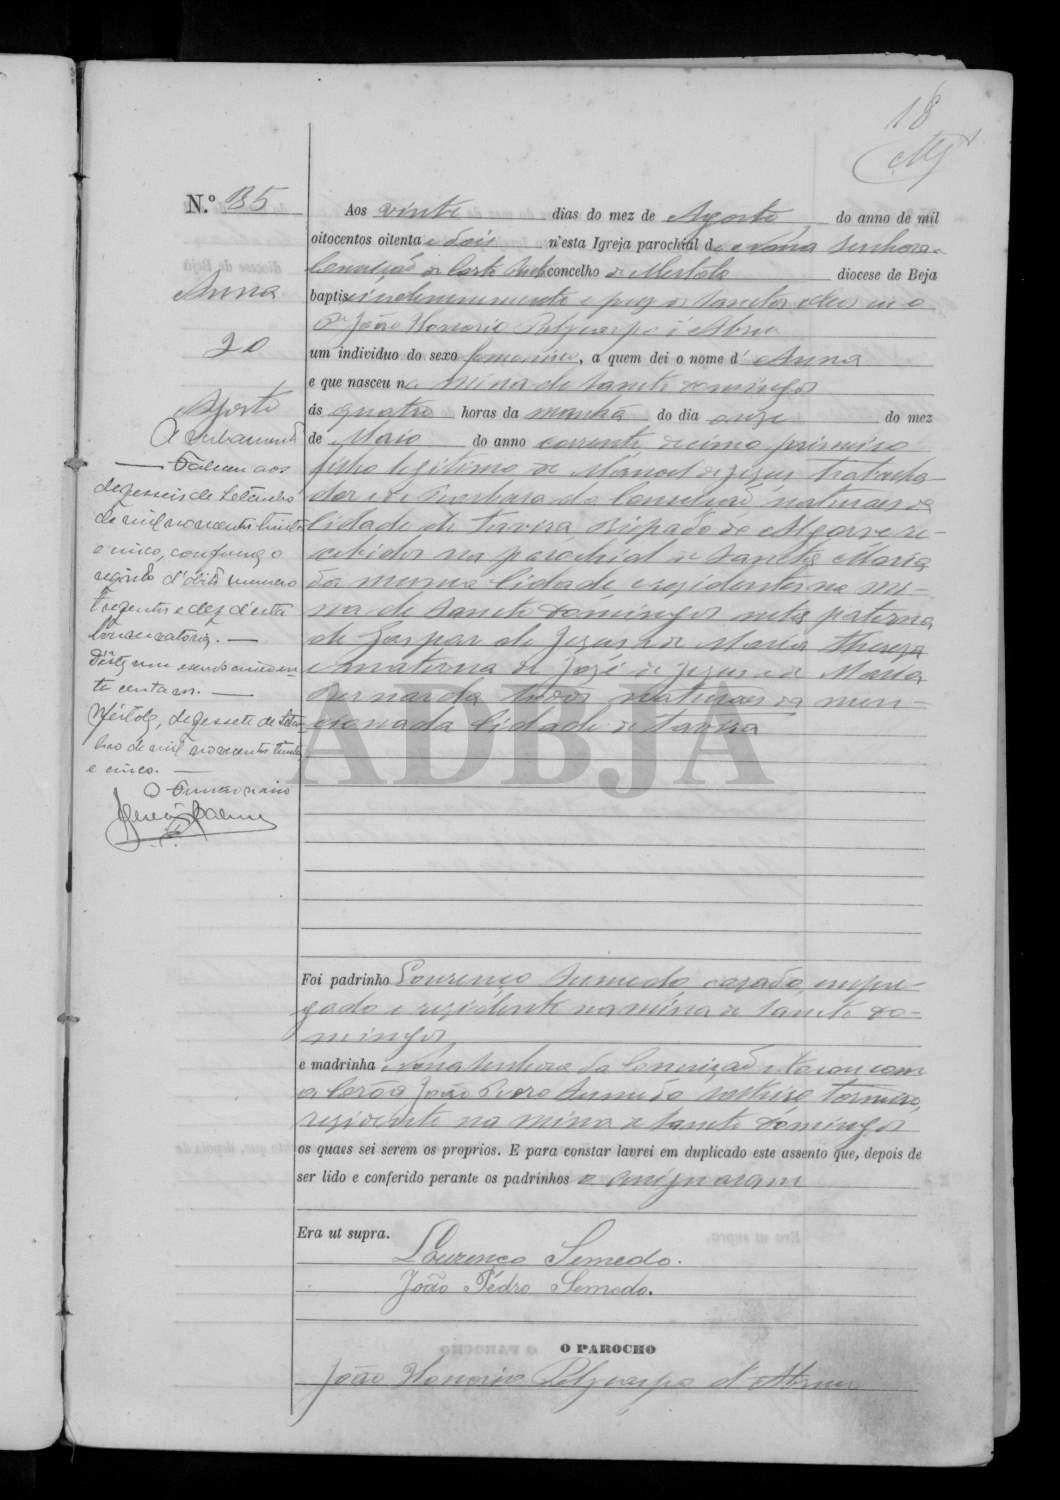 18
N.º 135
Anna
20
Agosto
Averbamento
Faleceu aos
dezesseis de Setembro
de mil novecentos trinta
e cinco, conforme o
registo d'obito numero
trezentos e dez d'esta
Conservatoria. —
centavos. —
Mertola, dezessete de Setem-
bro de mil novecentos trinta
e cinco. —
O Funcionario
Aos vinte dias do mez de Agosto do anno de mil
oitocentos oitenta e dois n'esta Igreja parochial de Nossa Senhora da
Conceição de Corte concelho de Mertola diocese de Beja
baptisei solemnemente e puz os Sanctos oleos eu o
Pe João Honorio Polycarpo d'Abreu
um individuo do sexo femenino, a quem dei o nome d' Anna
e que nasceu na mina de Sancto Domingos
ás quatro horas da manhã do dia onze do mez
de Maio do anno corrente decimo primeiro
filho legitimo de Manoel de Jezus trabalha-
dor e de Barbara da Conceição naturaes da
Cidade de Tavira Bispado do Algarve re-
cebidos na parochial de Sancta Maria
da mesma Cidade e rezidentes na mi-
na de Sancto Domingos neta paterna
de Gaspar de Jezus e de Maria Thereza
e materna de José de Jezus e de Maria
Bernarda todos naturaes da men-
cionada Cidade de Tavira
ADBJA
Foi padrinho Lourenço Semedo, cazado, empre-
gado e rezidente na mina de Sancto Do-
mingos
e madrinha Nossa Senhora da Conceição e tocou com
a Corôa João Pedro Semedo solteiro torneiro,
rezidente na mina de Sancto Domingos
os quaes sei serem os proprios. E para constar lavrei em duplicado este assento que, depois de
ser lido e conferido perante os padrinhos o assignaram
Era ut supra.
Lourenço Semedo.
João Pédro Semedo.
O PAROCHO
João Honorio Polycarpo d'Abreu